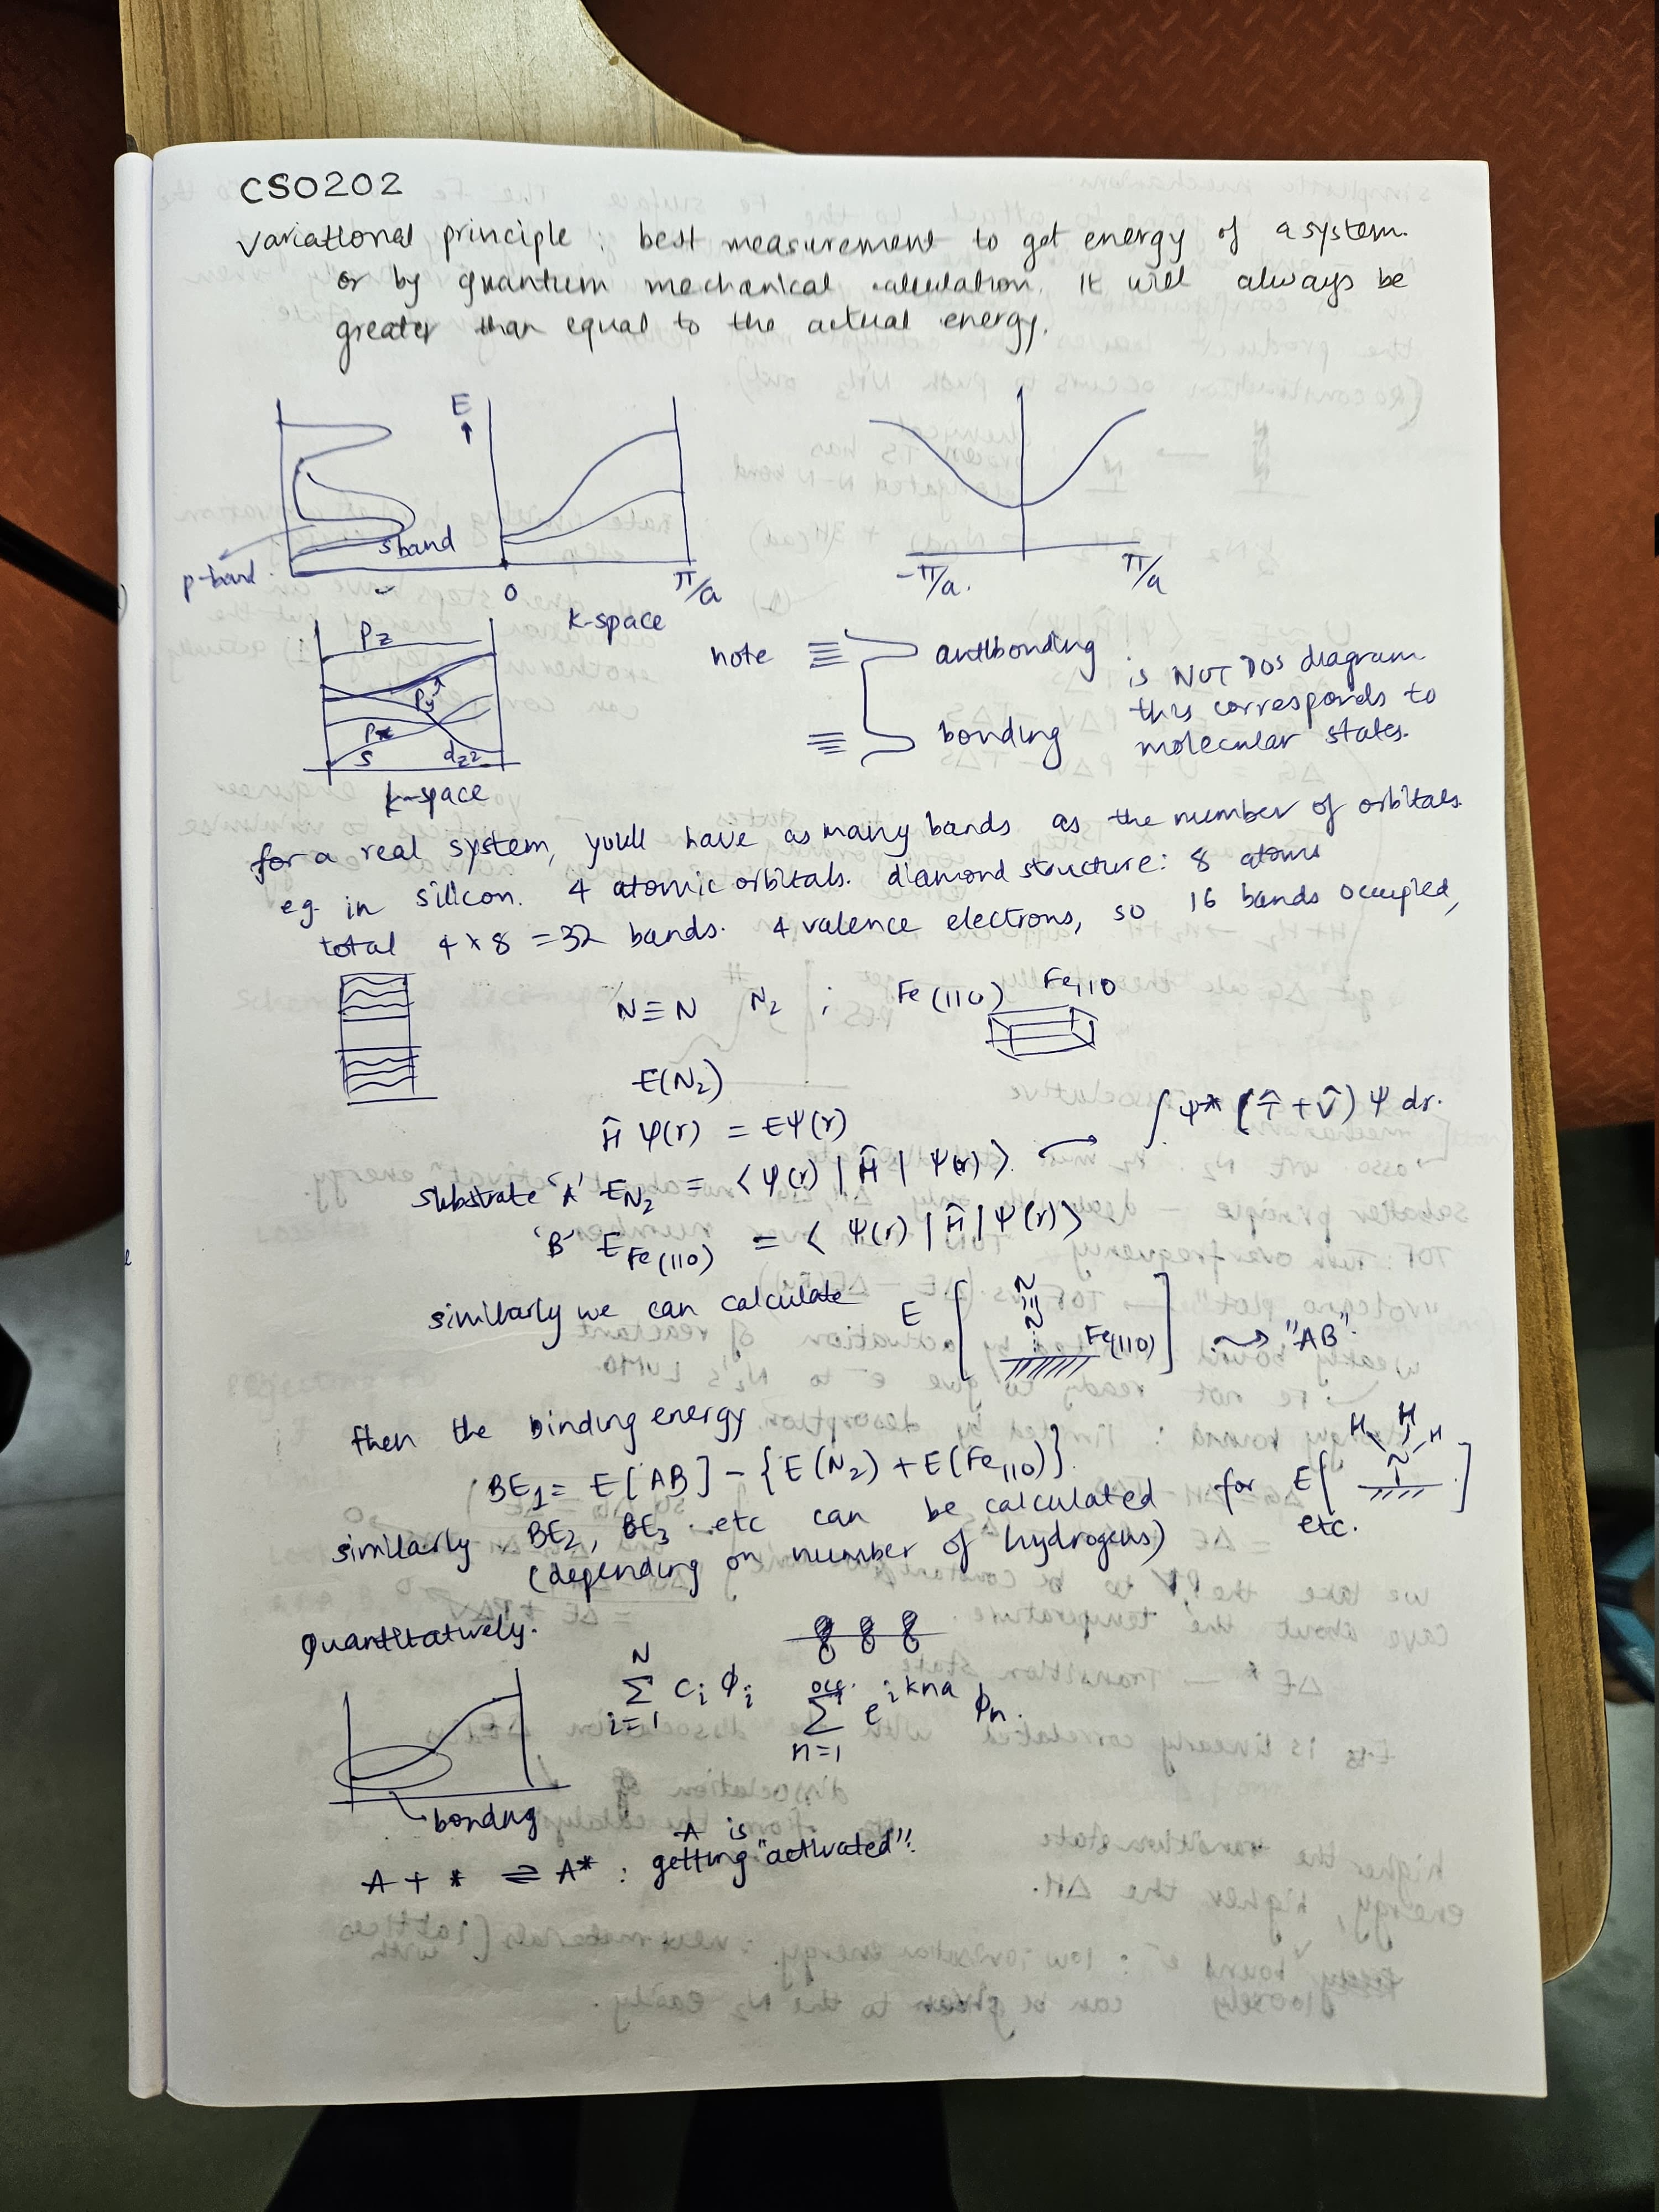 CSO202
variational principle : best measurement to get energy of a system.
or by quantum mechanical calculation. it will always be
greater than equal to the actual energy.
E
s band
p-band.
0
π/a
k-space
-π/a.
π/a
Pz
Py
s
dz2
k-space
note
antibonding
bonding
is NOT DOS diagram
this corresponds to
molecular states.
for a real system, youll have as many bands as the number of orbitals.
eg. in silicon. 4 atomic orbitals. diamond structure: 8 atoms
total 4 x 8 = 32 bands. 4 valence electrons, so 16 bands occupied,
N≡N N2 ; Fe(110) Fe110
E(N2)
Ĥ Ψ(r) = EΨ(r)
∫ Ψ* (T̂ + V̂) Ψ dr.
substrate 'A' EN2 = ⟨Ψ(r) | Ĥ | Ψ(r)⟩
'B' EFe(110) = ⟨Ψ(r) | Ĥ | Ψ(r)⟩
similarly we can calculate E [ N≡N Fe(110) ] → "AB".
then the binding energy
BE1 = E[AB] - {E(N2) + E(Fe110)}
similarly BE2, BE3 etc can be calculated for E[ H H H N ]
(depending on number of hydrogens) etc.
Quantitatively.
N Σ i=1 ci ϕi
occ. Σ n=1 e^ikna ϕn.
bonding
A + * ⇌ A* : A is getting "activated"!